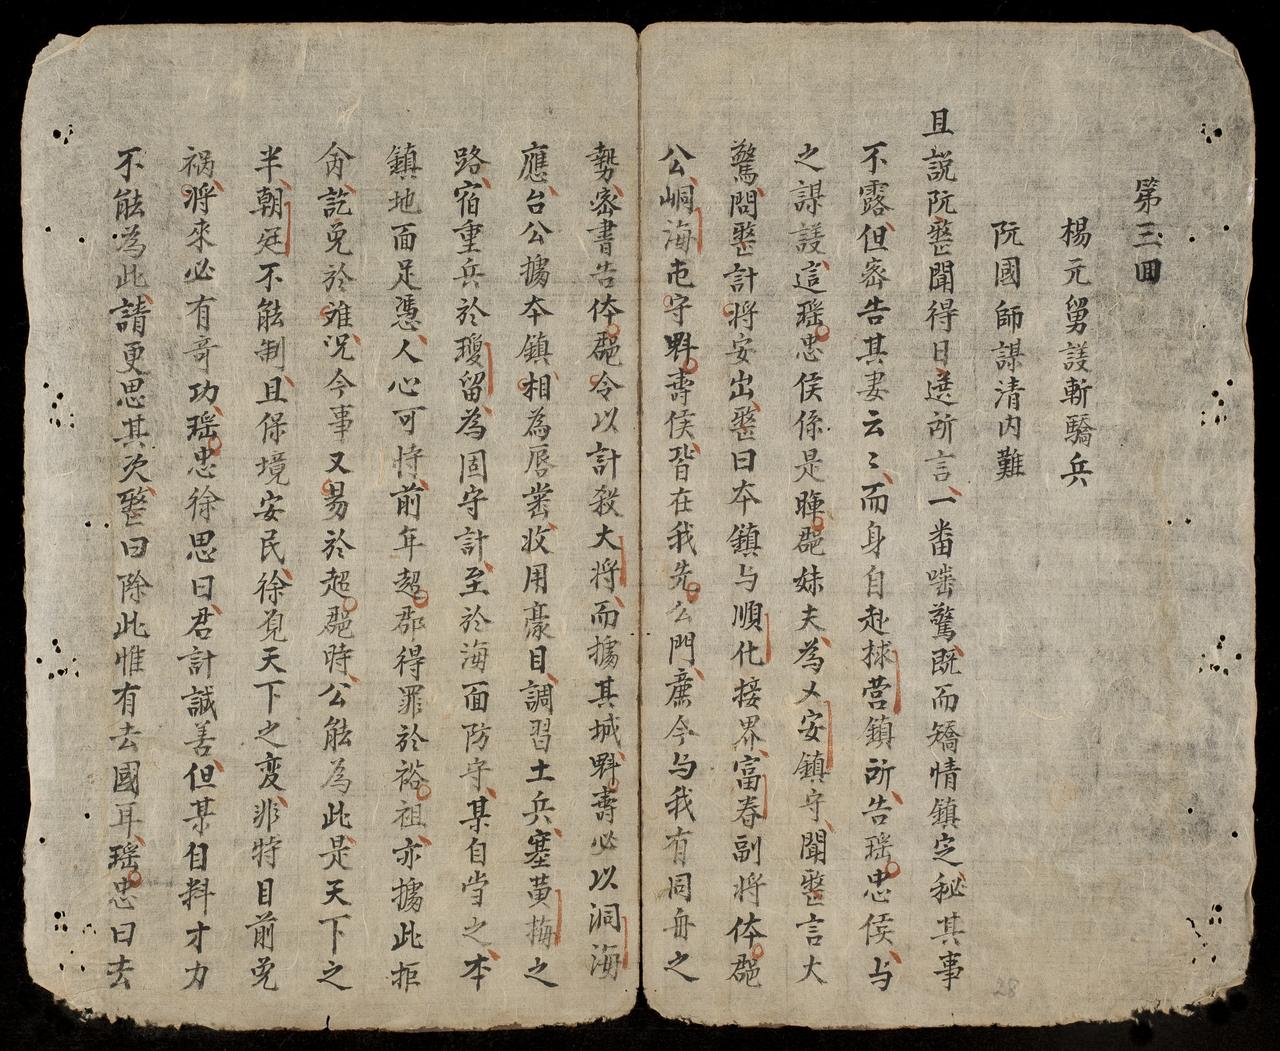 第三回
楊元舅議斬驕兵
阮國師謀清內難
且説阮整聞得日選所言一畨啮驚既而矯情鎮定秘其事
不露但密告其妻云〻而身自赴捄营鎮所告瑶忠侯与
之謀議這瑶忠侯係是暉郡妹夫為乂安鎮守聞整言大
驚問整計將安出整曰本鎮与順化接界富春副將体郡
公峒海屯守𣁬壽侯皆在我先公門庶今与我有同舟之
勢密書告体郡令以計殺大將而據其城𣁬壽必以洞海
應台公據本鎮相為唇齒收用豪目調習土兵塞黄梅之
路宿重兵於瓊留為固守計至於海面防守某自當之本
鎮地面足憑人心可恃前年超郡得罪於裕祖亦據此拒
命訖免於难况今事又易於超郡時公能為此是天下之
半朝廷不能制且保境安民徐覓天下之变非特目前免
禍將來必有奇功瑶忠徐思曰君計誠善但某自料才力
不能為此請更思其次整曰除此惟有去國耳瑶忠曰去
28